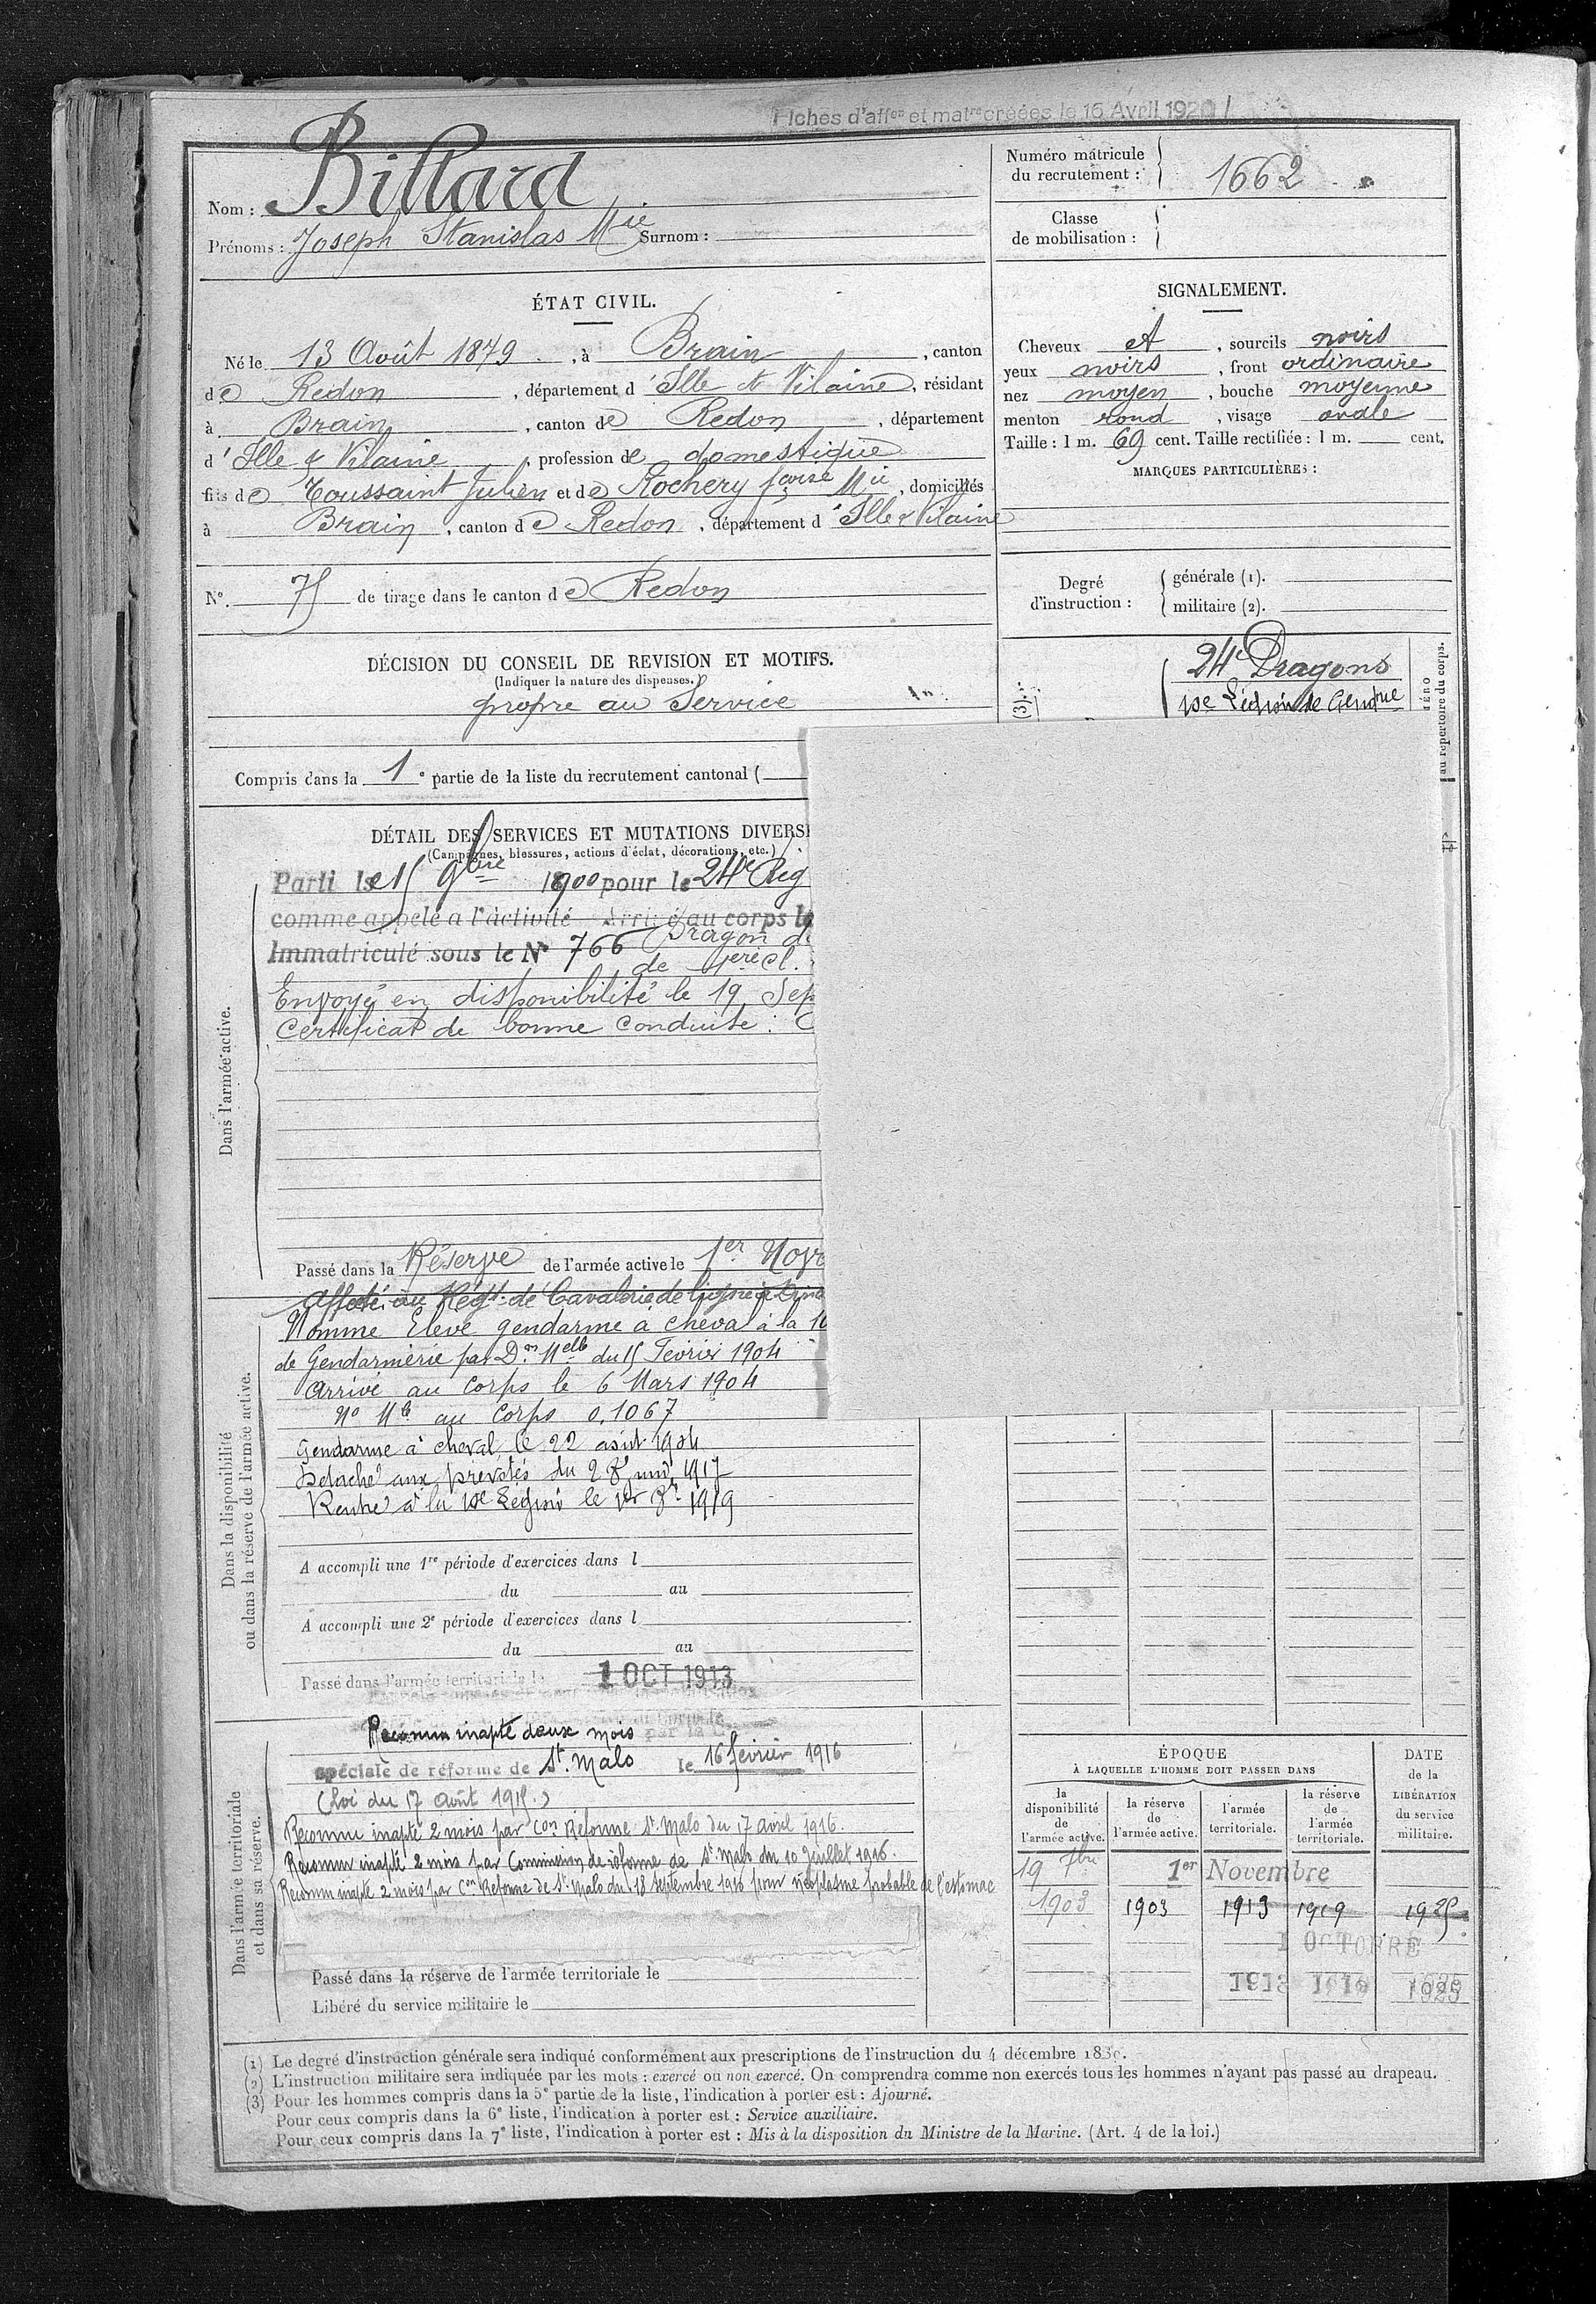 Fiches d'affon et matre créées le 16 Avril 1920
Nom : Billard
Prénoms : Joseph Stanislas Mie Surnom :
Numéro matricule du recrutement : 1662
Classe de mobilisation :
ÉTAT CIVIL.
Né le 13 Août 1879, à Brain, canton
de Redon, département d'Ille & Vilaine, résidant
à Brain, canton de Redon, département
d'Ille & Vilaine, profession de domestique
fils de Toussaint Julien et de Rochery fçoise Mie, domiciliés
à Brain, canton de Redon, département d'Ille & Vilaine
SIGNALEMENT.
Cheveux et, sourcils noirs
yeux noirs, front ordinaire
nez moyen, bouche moyenne
menton rond, visage ovale
Taille : 1 m. 69 cent. Taille rectifiée : 1 m. cent.
MARQUES PARTICULIÈRES :
N°. 75 de tirage dans le canton de Redon
Degré d'instruction : générale (1).
militaire (2).
DÉCISION DU CONSEIL DE REVISION ET MOTIFS.
(Indiquer la nature des dispenses.)
propre au Service
Compris dans la 1e partie de la liste du recrutement cantonal (
(3).
24e Dragons
10e Légion de Genrie
au répertoire du corps.
DÉTAIL DES SERVICES ET MUTATIONS DIVERS
(Campagnes, blessures, actions d'éclat, décorations, etc.)
Dans l'armée active.
Parti le 15 9bre 1900 pour le 24e Rég
comme appelé à l'activité Arrivé au corps le
Immatriculé sous le N° 766 Dragon d
de 1ère cl.
Envoyé en disponibilité le 19 Sep
Certificat de bonne conduite :
Passé dans la Réserve de l'armée active le 1er Nov
Dans la disponibilité ou dans la réserve de l'armée active.
Affecté au Régt de Cavalerie de ligne à Dina
Nommé Elève gendarme à cheval à la 10
de Gendarmerie par Don Melle du 15 Février 1904
Arrivé au Corps le 6 Mars 1904
No Mle au Corps 0.1067
Gendarme à cheval le 22 août 1904
Détaché aux prévotés du 2 1917
Rentré à la 10e Légion le 1er 1919
A accompli une 1re période d'exercices dans l
du au
A accompli une 2e période d'exercices dans l
du au
Passé dans l'armée territoriale le 1 OCT 1913
Dans l'armée territoriale et dans sa réserve.
Reconnu inapte deux mois par la C
spéciale de réforme de St. Malo le 16 février 1916
(Loi du 17 Août 1915.)
Reconnu inapte 2 mois par Con Réforme St Malo du 17 avril 1916.
Reconnu inapte 2 mois par Commission de réforme de St Malo du 10 Juillet 1916.
Reconnu inapte 2 mois par Con Réforme de St Malo du 18 Septembre 1916 pour néoplasme probable de l'estomac
Passé dans la réserve de l'armée territoriale le
Libéré du service militaire le
ÉPOQUE
À LAQUELLE L'HOMME DOIT PASSER DANS
la disponibilité de l'armée active.
la réserve de l'armée active.
l'armée territoriale.
la réserve de l'armée territoriale.
DATE de la LIBÉRATION du service militaire.
19 7bre 1er Novembre
1903 1903 1913 1919 1925
1 OCTOBRE
1913 1919 1925
(1) Le degré d'instruction générale sera indiqué conformément aux prescriptions de l'instruction du 4 décembre 1889.
(2) L'instruction militaire sera indiquée par les mots : exercé ou non exercé. On comprendra comme non exercés tous les hommes n'ayant pas passé au drapeau.
(3) Pour les hommes compris dans la 5e partie de la liste, l'indication à porter est : Ajourné.
Pour ceux compris dans la 6e liste, l'indication à porter est : Service auxiliaire.
Pour ceux compris dans la 7e liste, l'indication à porter est : Mis à la disposition du Ministre de la Marine. (Art. 4 de la loi.)